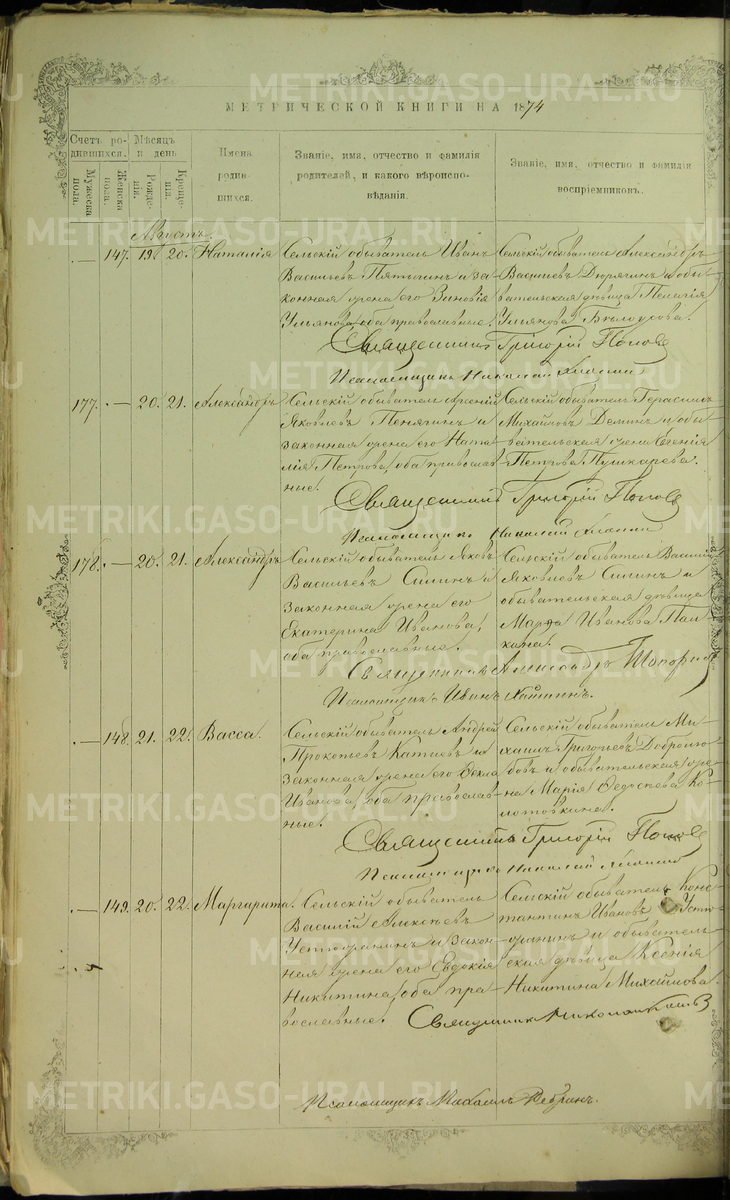 МЕТРИЧЕСКОЙ КНИГИ НА 1874
Счетъ ро-
дившихся.
Мужеска
пола.
Женска
пола.
Мѣсяцъ
и день
Рожде-
нія.
Креще-
нія.
Имена
родив-
шихся.
Званіе, имя, отчество и фамилія
родителей, и какого вѣроиспо-
вѣданія.
Званіе, имя, отчество и фамилія
воспріемниковъ.
Августъ.
147. 19. 20. Наталія
Сельскій обыватель Иванъ
Васильевъ и за-
конная жена его Зиновія
Ульянова, оба православные.
Сельскій обыватель Александръ
Васильевъ Дюрягинъ и обы-
вательская дѣвица Пелагія
Ульянова Бѣлоусова.
Священникъ Григорій Поповъ
Псаломщикъ Николай
177. — 20. 21. Александръ
Сельскій обыватель Арсеній
Яковлевъ Пенягинъ и
законная жена его Ната-
лія Петрова, оба православ-
ные.
Сельскій обыватель Герасимъ
Михайловъ Деминъ и обы-
вательская жена Евгенія
Петрова Пушкарева.
Священникъ Григорій Поповъ
Псаломщикъ Николай
178. — 20. 21. Александръ
Сельскій обыватель Яковъ
Васильевъ Силинъ и
законная жена его
Екатерина Иванова,
оба православные.
Сельскій обыватель Василій
Яковлевъ Силинъ и
обывательская дѣвица
Марѳа Иванова Пал-
кина.
Священникъ Александръ
Псаломщикъ Иванъ
— 148. 21. 22. Васса.
Сельскій обыватель Андрей
Прокопьевъ Катаевъ и
законная жена его Ѳекла
Иванова, оба православ-
ные.
Сельскій обыватель Ми-
хаилъ Григорьевъ Добролю-
бовъ и обывательская же-
на Марія Ѳедосѣева Ко-
лотовкина.
Священникъ Григорій Поповъ
Псаломщикъ Николай
— 149. 20. 22. Маргарита.
Сельскій обыватель
Василій Алексѣевъ
Устюжанинъ и закон-
ная жена его Евдокія
Никитина, оба пра-
вославные.
Сельскій обыватель Конс-
тантинъ Ивановъ Устю-
жанинъ и обыватель-
ская дѣвица Ксенія
Никитина Михайлова.
Священникъ
Псаломщикъ Михаилъ Ребринъ.
METRIKI.GASO-URAL.RU